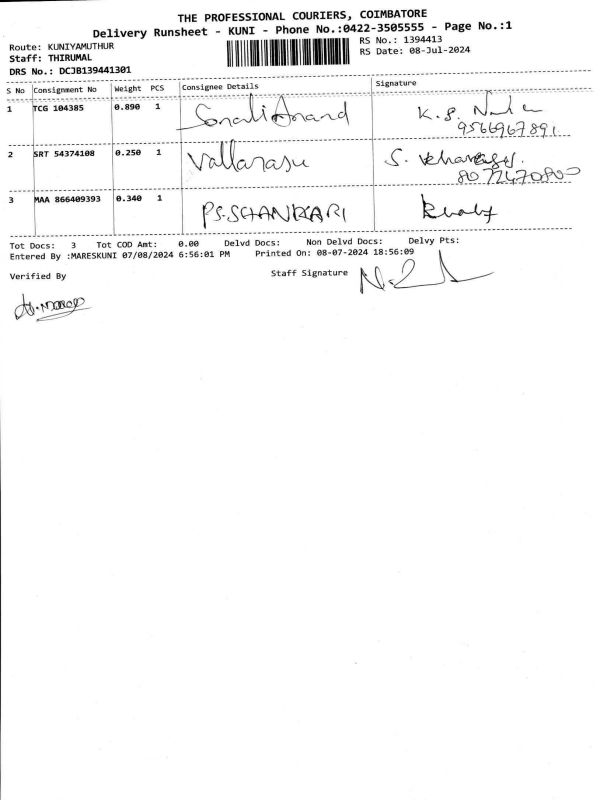 THE PROFESSIONAL COURIERS, COIMBATORE
Delivery Runsheet - KUNI - Phone No.:0422-3505555 - Page No.:1
Route: KUNIYAMUTHUR
RS No.: 1394413
Staff: THIRUMAL
RS Date: 08-Jul-2024
DRS No.: DCJB139441301
S No Consignment No Weight PCS Consignee Details Signature
1 TCG 104385 0.890 1 Sonali Anand K.S.
9566967891
2 SRT 54374108 0.250 1 Vallarasu S.
3 MAA 866409393 0.340 1 P.S.SHANKARI
Tot Docs: 3 Tot COD Amt: 0.00 Delvd Docs: Non Delvd Docs: Delvy Pts:
Entered By :MARESKUNI 07/08/2024 6:56:01 PM Printed On: 08-07-2024 18:56:09
Verified By Staff Signature